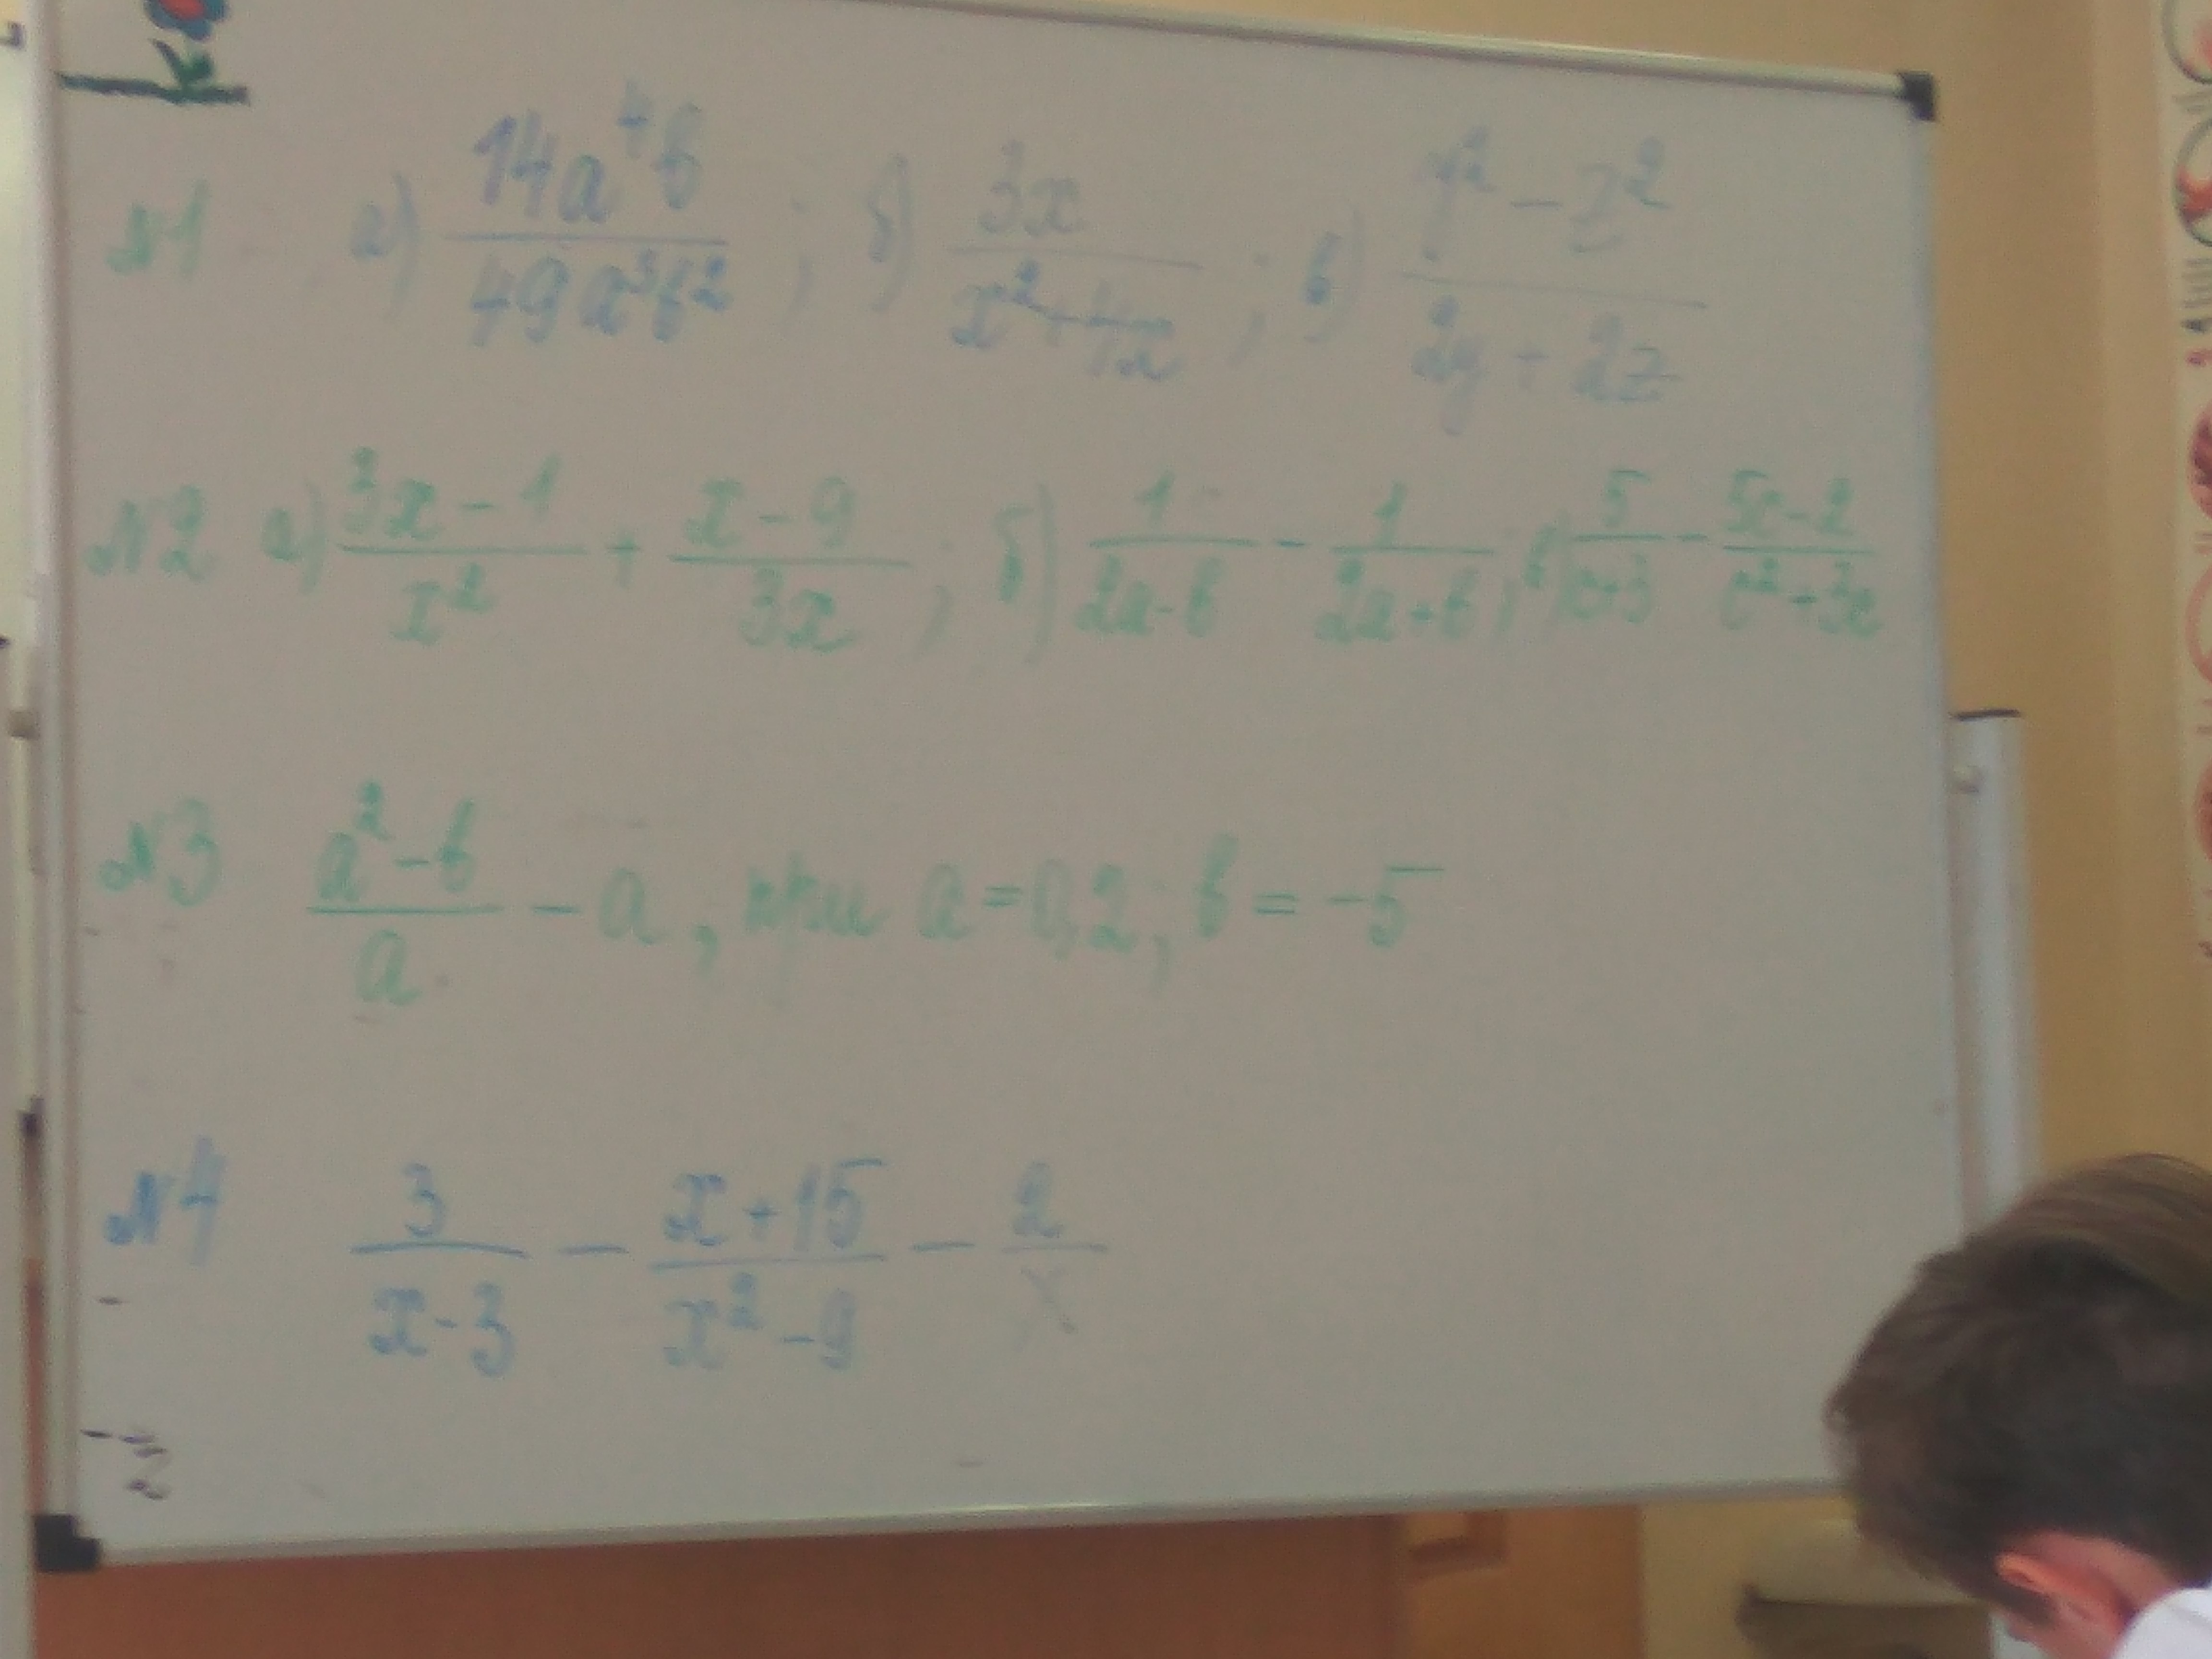 №1 а) 14a⁴b/49a³b² ; б) 3x/x²+4x ; в) y²-z²/2y+2z
№2 а) 3x-1/x² + x-9/3x ; б) 1/2a-b - 1/2a+b ; в) 5/c+3 - 5c-2/c²+3c
№3 a²-b/a - a, при a=0,2; b = -5
№4 3/x-3 - x+15/x²-9 - 2/x